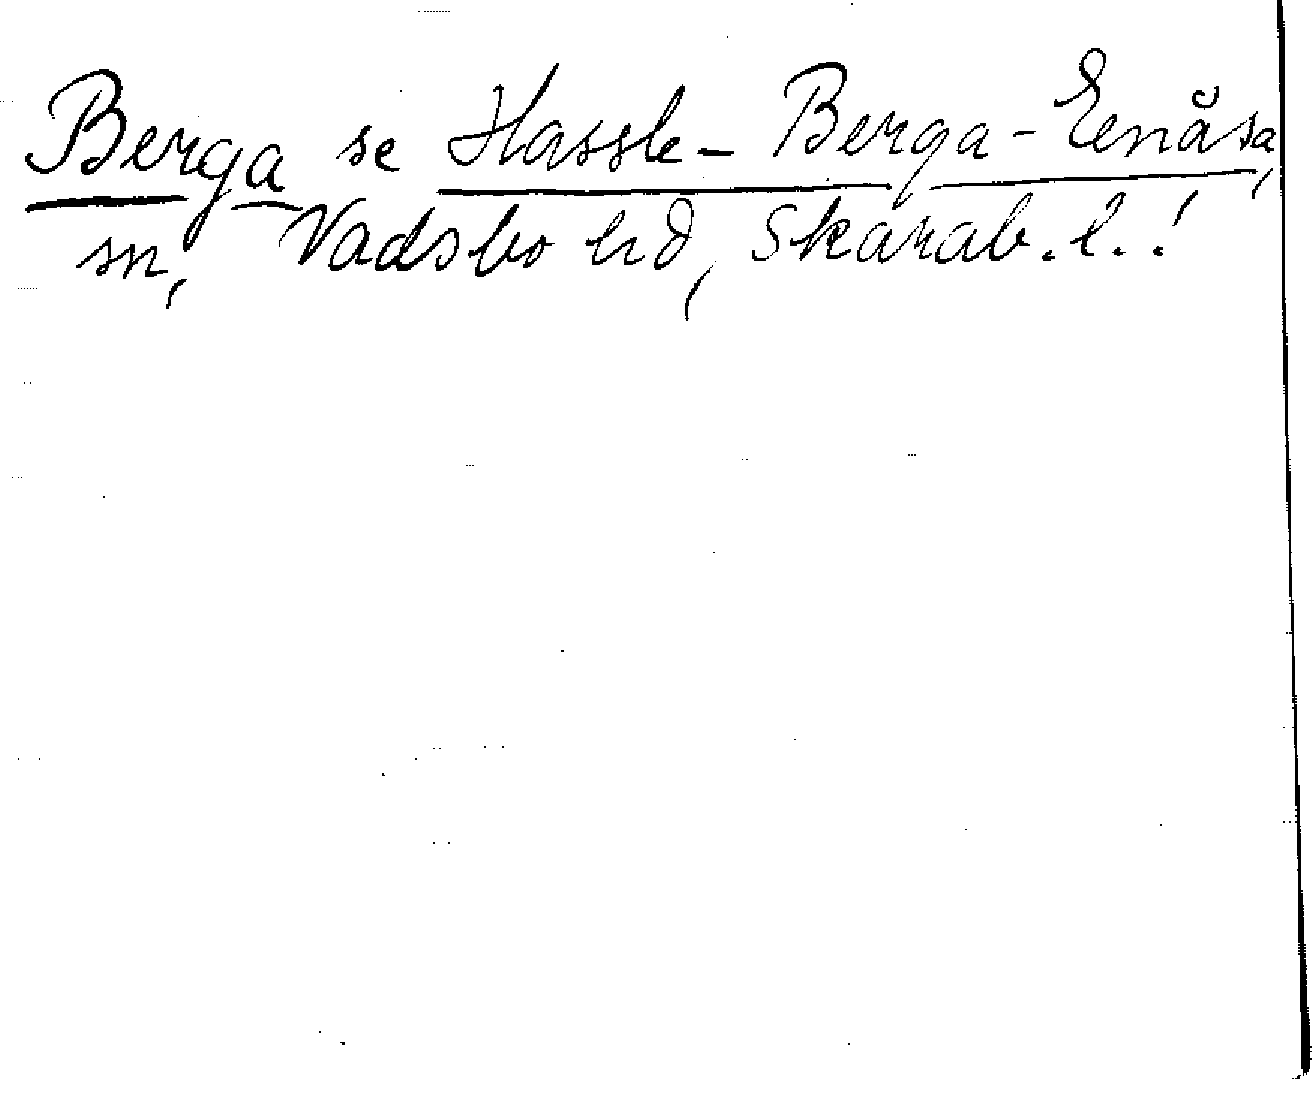 Berga se Hassle-Berga-Enåsa,
sn, Vadsbo hd, Skarab. l.!